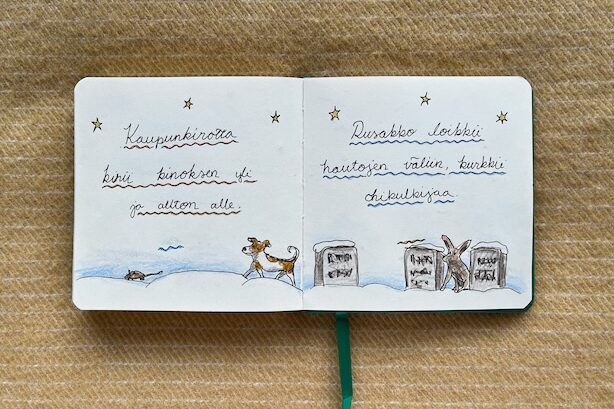 Kaupunkirotta
kirii kinoksen yli
ja alton alle.
Rusakko loikkii
hautojen väliin, kurkkii
ohikulkijaa.